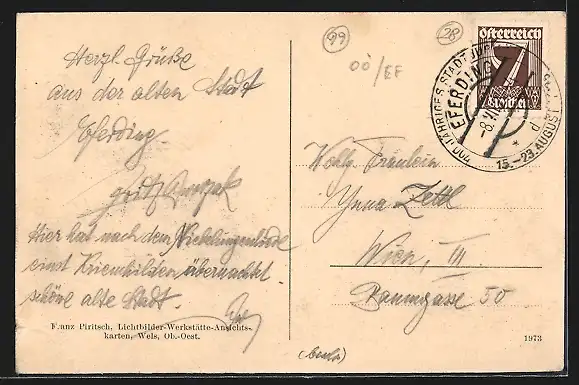 Herzl. Grüße
aus der alten Stadt
Eferding
Hier hat nach dem Niebelungenliede
einst Kriemhilden übernachtet.
schöne alte Stadt.
Franz Piritsch, Lichtbilder-Werkstätte-Ansichts-
karten, Wels, Ob.-Oest.
99
28
OÖ/EF
Österreich
7
Groschen
700 JÄHRIGES STADTJUB
EFERDING
15.-23. AUGUST
Wohlg. Fräulein
Zettl
Wien, III
Baumgasse 50
1973